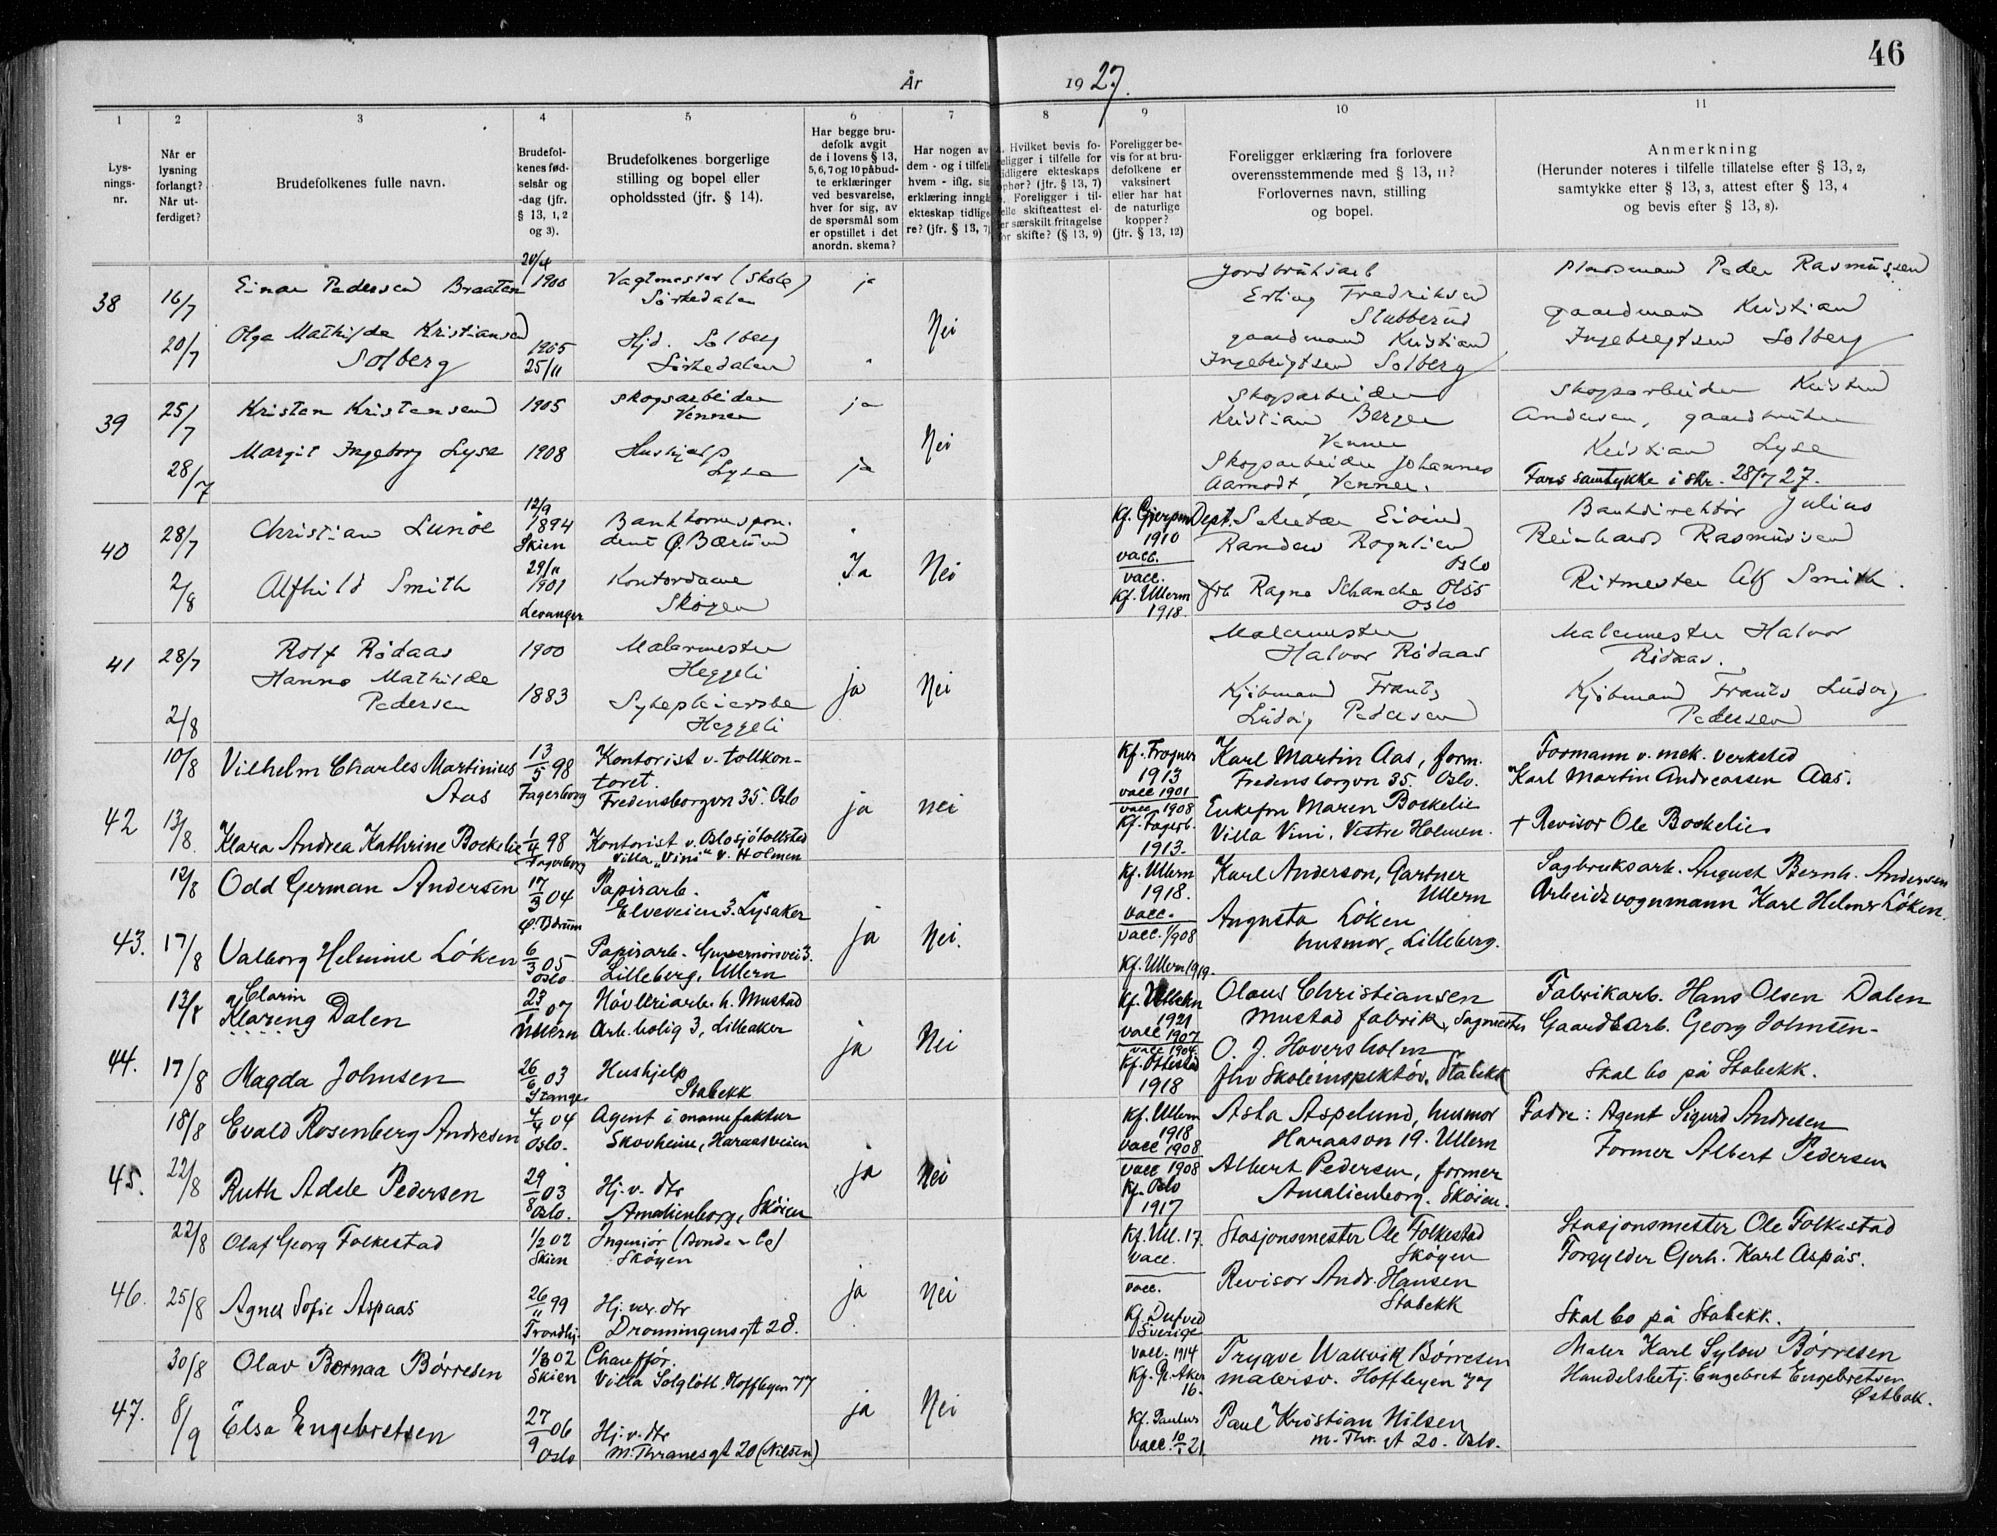 46
År 1927.
1 2 3 4 5 6 7 8 9 10 11
Lys-
nings-
nr.
Når er
lysning
forlangt?
Når ut-
ferdiget?
Brudefolkenes fulle navn.
Brudefol-
kenes fød-
selsår og
-dag (jfr.
§ 13, 1, 2
og 3).
Brudefolkenes borgerlige
stilling og bopel eller
opholdssted (jfr. § 14).
Har begge bru-
defolk avgit
de i lovens § 13,
5, 6, 7 og 10 påbud-
te erklæringer
ved besvarelse,
hver for sig, av
de spørsmål som
er opstillet i det
anordn. skema?
Har nogen av
dem - og i tilfelle
hvem - iflg. sin
erklæring inngå
ekteskap tidlige
re? (jfr. § 13, 7)
Hvilket bevis fo-
religger i tilfelle for
tidligere ekteskaps
ophør? (jfr. § 13, 7)
Foreligger i til-
felle skifteattest el-
er særskilt fritagelse
for skifte? (§ 13, 9)
Foreligger be-
vis for at bru-
defolkene er
vaksinert
eller har hat
de naturlige
kopper?
(jfr. § 13, 12)
Foreligger erklæring fra forlovere
overensstemmende med § 13, 11?
Forlovernes navn, stilling
og bopel.
Anmerkning
(Herunder noteres i tilfelle tillatelse efter § 13, 2,
samtykke efter § 13, 3, attest efter § 13, 4
og bevis efter § 13, 8).
38
16/7
20/7
Einar Pedersen Braaten
Olga Mathilde Kristiansen
Solberg
20/4
1900
1905
25/11
Vagtmester (Skole)
Sørkedalen
Hjd. Solberg
Sørkedalen
ja
Nei
Jordbruksarb
Erling Fredriksen
Stubberud
gaardmand Kristian
Ingebrigtsen Solberg
Plassmand Peder Rasmussen
gaardmand Kristian
Ingebregtsen Solberg
39
25/7
28/7
Kristen Kristensen
Margit Ingeborg Lysa
1905
1908
Skogsarbeider
Venner
Hushjelp
Lysa
ja
ja
Nei
Skogsarbeider
Kristian Berger
Venner
Skogsarbeider Johannes
Aamodt, Venner.
Skogsarbeider Kristen
Andersen, gaardbruker
Kristian Lysa
Fars samtykke i skr. 28/7 27.
40
28/7
2/8
Christian Lunøe
Alfhild Smith
12/9
1894
Skien
29/11
1901
Levanger
Bankkorrespon-
dent Ø. Bærum
Kontordame
Skøyen
Ja
Nei
Kf. Gjerpen
1910
vacc.
vacc.
Kf. Ullern
1918.
Dept. Sekretær Eivind
Randers Rognlien
Oslo
frk Ragna Schanche Olss
Oslo
Bankdirektør Julius
Reinhard Rasmussen
Ritmester Alf Smith.
41
28/7
2/8
Rolf Rødaas
Hanna Mathilde
Pedersen
1900
1883
Malermester
Heggeli
Sykepleierske
Heggeli
ja
Nei
Malermester
Halvor Rødaas
Kjøbmand Frants
Ludvig Pedersen
Malermester Halvor
Rødaas.
Kjøbmand Frants Ludvig
Pedersen
42
10/8
13/8.
Vilhelm Charles Martinius
Aas
Klara Andrea Kathrine Bockelie
13/5 98
Fagerborg
1/4 98
Fagerborg
Kontorist v. tollkon-
toret.
Fredensborgvn 35. Oslo
Kontorist v. Oslosjötollsted
Villa „Vini“ V. Holmen
ja
nei
Kf. Frogner
1913
vacc 1901
vacc 1908
Kf. Fagerb.
1913.
Karl Martin Aas, form.
Fredensborgvn 35. Oslo.
Enkefru Maren Bockelie
Villa Vini, Vestre Holmen.
Formann v. mek. verksted
Karl Martin Andreassen Aas.
+ Revisor Ole Bockelie
43.
12/8
17/8
Odd German Andersen
Valborg Helmine Löken
17/3 04
Ø. Bærum
6/3 05
Oslo
Papirarb.
Elveveien 3. Lysaker
Papirarb. Guvernörsvei 3.
Lilleberg, Ullern
ja
Nei.
Kf. Ullern
1918.
vacc.
vacc. 1/908
Kf. Ullern 1919.
Karl Anderson, Gartner
Ullern
Augusta Löken
husmor, Lilleberg.
Sagbruksarb. August Bernh. Andersen
Arbeidsvognmann Karl Helmer Löken.
44.
13/8
17/8
Clarin
Klareng Dalen
Magda Johnsen
23/1 07
Ullern
26/6 03
Stange
Høvleriarb. h. Mustad
Arb. bolig 3, Lilleaker
Hushjelp
Stabekk
ja
Nei
Kf. Ullern
1921
vacc 1907
vacc 1904.
Kf. Ottestad
1918
Olaus Christiansen
Mustad fabrik, Sagmester
O. J. Hoversholm
fhv Skoleinspektör, Stabekk
Fabrikarb. Hans Olsen Dalen
Gaardsarb. Georg Johnsen-
Skal bo på Stabekk.
45.
18/8
22/8
Evald Rosenberg Andresen
Ruth Adele Pedersen
4/4 04
Oslo.
29/8 03
Oslo.
Agent i manufaktur
Skovheim, Haraasveien
Hj. v. dtr
Amalienborg, Sköien
ja
Nei
Kf. Ullern
1918
vacc 1908
vacc 1908
Kf. Oslo
1917
Asta Aspelund, husmor
Haraasvn 19. Ullern
Albert Pedersen, former
Amalienborg. Sköien.
Fadre: Agent Sigurd Andresen
Former Albert Pedersen
46.
22/8
25/8
Olaf Georg Folkestad
Agnes Sofie Aspaas
1/2 02
Skien
26/11 99
Trondhj.
Ingeniør (Bonde & Co)
Sköyen
Hj. vær. dtr
Dronningensgt 28.
ja
Nei
Kf. Ull. 17.
vacc.
vacc.
Kf. Dufved
Sverige
Stasjonsmester Ole Folkestad
Skøyen
Revisor Andr. Hansen
Stabekk
Stasjonsmester Ole Folkestad
Forgylder Gerh. Karl Aspås.
Skal bo på Stabekk.
47.
30/8
8/9
Olav Bornaa Børresen
Elsa Engebretsen
1/3 02
Skien
27/9 06
Oslo
Chauffør.
Villa Solglöt. Hoffsveien 77
Hj. v. dtr
M. Thranesgt 20 (Nilsen)
ja
Nei
Vacc. 1914
Kf. V. Aker
16.
Kf. Paulus
vacc. 10/1 21
Trygve Wallvik Börresen
malersv. Hoffsveien 77
Paul Kristian Nilsen
M. Thr. gt 20. Oslo.
Maler Karl Sylow Børresen
Handelsbetj. Engebret Engebretsen
Østbak.